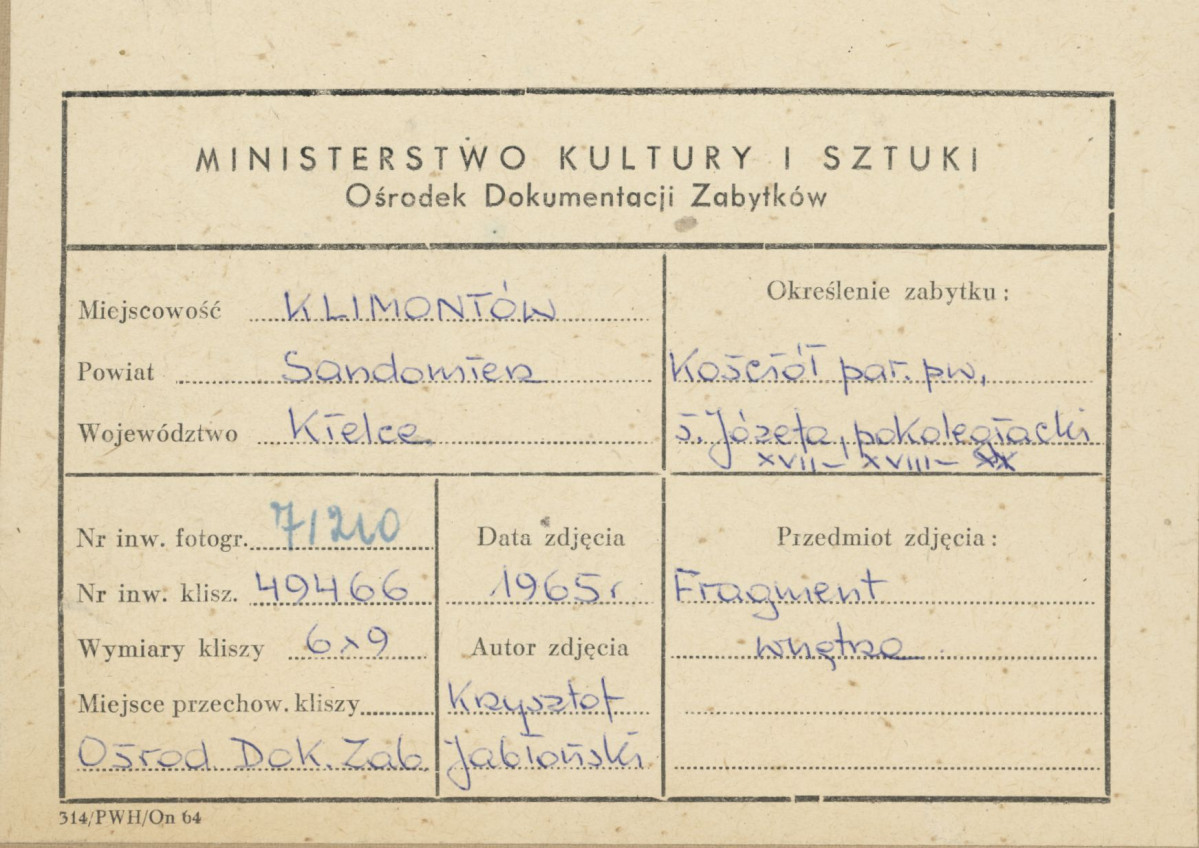 MINISTERSTWO KULTURY I SZTUKI
Ośrodek Dokumentacji Zabytków
Miejscowość KLIMONTÓW
Powiat Sandomierz
Województwo Kielce
Określenie zabytku:
Kościół par. pw.
ś. Józefa, pokolegiacki
XVII – XVIII – XX
Nr inw. fotogr. 71210
Nr inw. klisz. 49466
Wymiary kliszy 6x9
Miejsce przechow. kliszy
Ośrod Dok. Zab.
Data zdjęcia
1965r
Autor zdjęcia
Krzysztof
Jabłoński
Przedmiot zdjęcia:
Fragment
wnętrza
314/PWH/On 64